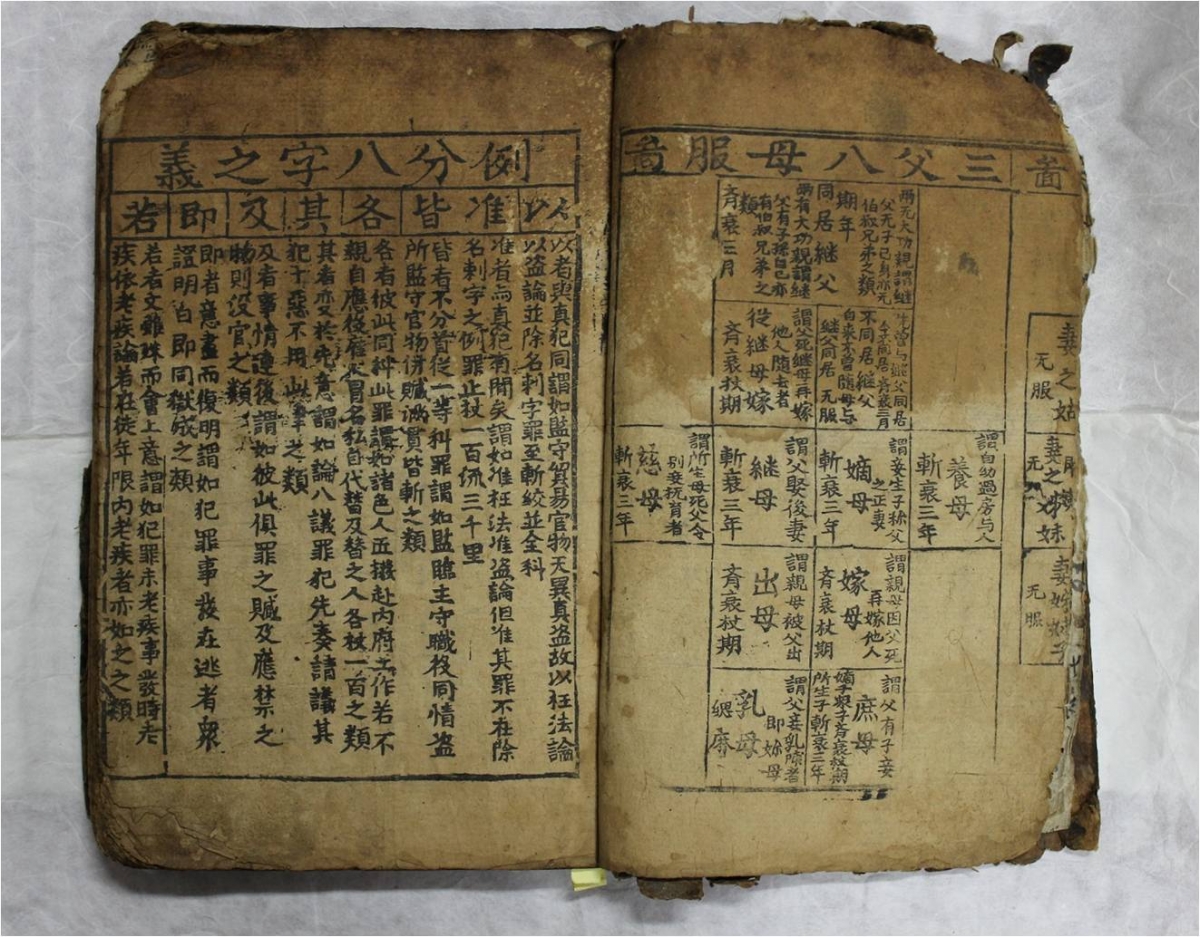 啚
妻之姑
无服
妻之姊妹
无服
无服
三父八母服啚
兩无大功親謂継
父无子已身亦无
伯叔兄弟之類
期年
同居継父
兩有大功親謂継
父有子孫自己亦
有伯叔兄弟之
類
斉衰三月
先曾与継父同居
今不同居斉衰三月
不同居継父
自来不曾随母与
継父同居 无服
謂父死継母再嫁
他人随去者
從継母嫁
斉衰杖期
謂自幼過房与人
養母
斬衰三年
謂妾生子称父
之正妻
嫡母
斬衰三年
謂父娶後妻
継母
斬衰三年
謂所生母死父令
别妾撫育者
慈母
斬衰三年
謂親母因父死
再嫁他人
嫁母
斉衰杖期
謂親母被父出
出母
斉衰杖期
謂父有子妾
庶母
嫡子衆子斉衰杖期
所生子斬衰三年
謂父妾乳哺者
即妳母
乳母
緦麻
例分八字之義
以 准 皆 各 其 及 即 若
以者與真犯同謂如監守貿易官物天異真盗故以枉法論
以盗論並除名刺字罪至斬絞並全科
准者与真犯有間矣謂如准枉法准盗論但准其罪不在除
名刺字之例罪止杖一百流三千里
皆者不分首從一等科罪謂如監臨主守職役同情盗
所監守官物併贓滿貫皆斬之類
各者彼此同科此罪謂如諸色人五撥赴内府工作若不
親自應役雇人冒名私自代替及替之人各杖一百之類
其者变於先意謂如論八議罪犯先奏請議其
犯十惡不用此事之類
及者事情連後謂如彼此俱罪之贓及應禁之
物則没官之類
即者意盡而復明謂如犯罪事發在逃者衆
證明白即同獄成之類
若者文雖殊而會上意謂如犯罪未老疾事發時老
疾依老疾論若在徒年限内老疾者亦如之之類